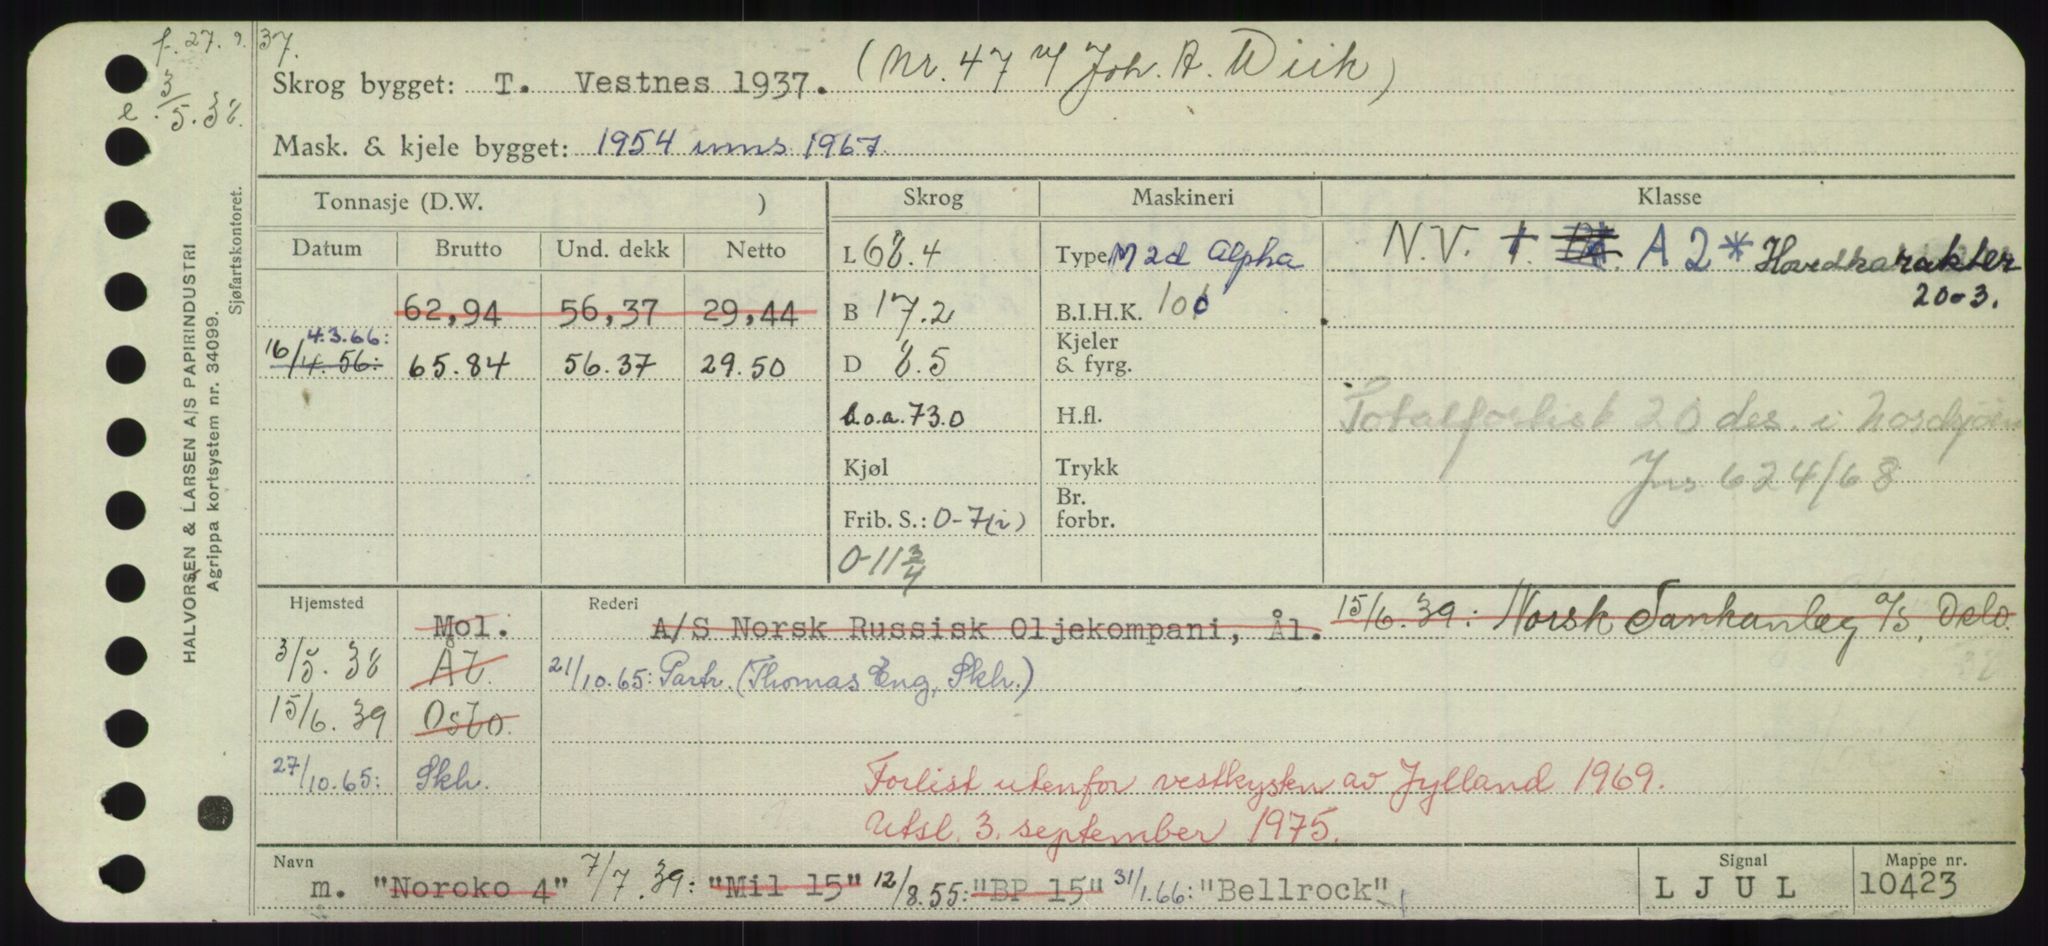 f. 27. 9. 37.
e. 3/5. 38.
Skrog bygget: T. Vestnes 1937. (Nr. 47 v/ Joh. A. Wiik)
Mask. & kjele bygget: 1954 inns 1967
Tonnasje (D.W. ) Skrog Maskineri Klasse
Datum Brutto Und. dekk Netto L 68.4 Type M 2d Alpha N.V. A 2* Hovedkarakter
20-3.
62,94 56,37 29,44 B 17.2 B.I.H.K. 100
4.3.66: Kjeler
16/4.56: 65.84 56.37 29.50 D 8.5 & fyrg.
l.o.a. 73.0 H.fl. Totalforlist 20 des. i Nordsjøen
Kjøl Trykk Jns 624/68
Br.
Frib. S.: 0-7(i) forbr.
0-11 3/4
Hjemsted Rederi
Mol. A/S Norsk Russisk Oljekompani, Ål. 15/6.39: Norsk Tankanleg a/s, Oslo.
3/5. 38 Ål. 21/10.65: Partr. (Thomas Eng, Skh.)
15/6. 39 Oslo.
27/10.65: Skh. Forlist utenfor vestkysten av Jylland 1969.
Utsl. 3. september 1975.
Navn Signal Mappe nr.
m. "Noroko 4" 7/7.39: "Mil 15" 12/8.55: "BP 15" 31/1.66: "Bellrock" L J U L 10423
HALVORSEN & LARSEN A/S PAPIRINDUSTRI
Agrippa kortsystem nr. 34099.
Sjøfartskontoret.